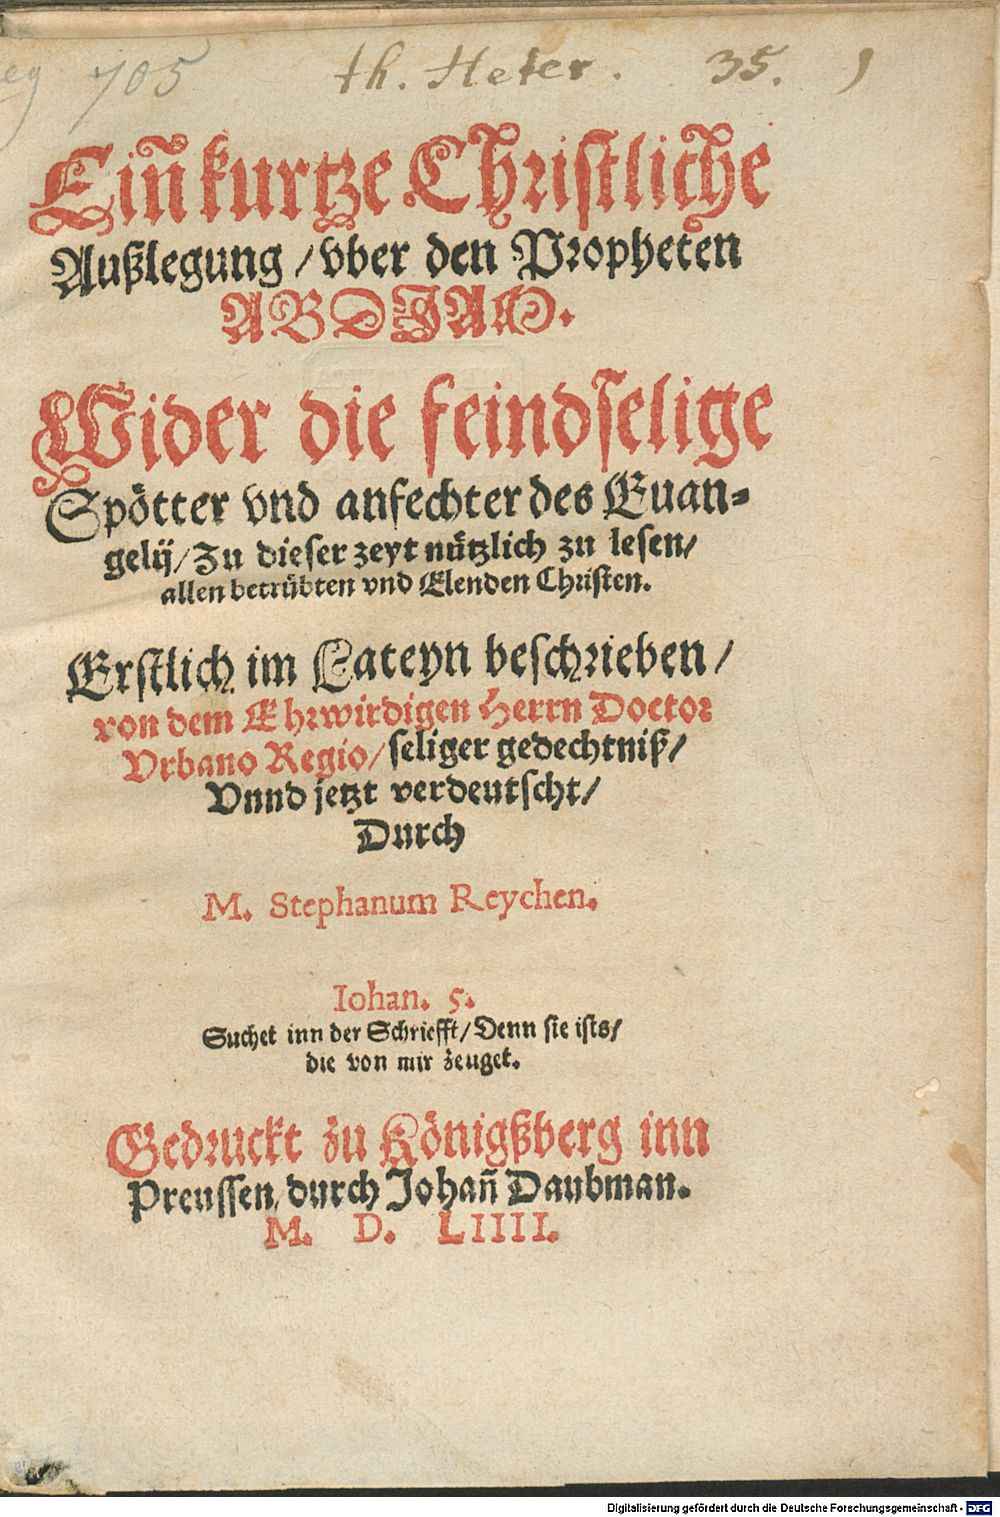 eg 705 th. Heter. 35. )
Eiñ kurtze Christliche
Außlegung / vber den Propheten
ABDJAH.
Wider die feindselige
Spötter vnd anfechter des Euan-
gelij / Zu dieser zeyt nützlich zu lesen /
allen betrübten vnd Elenden Christen.
Erstlich im Lateyn beschrieben /
von dem Ehrwirdigen Herrn Doctor
Vrbano Regio / seliger gedechtniß /
Vnnd jetzt verdeutscht /
Durch
M. Stephanum Reychen.
Iohan. 5.
Suchet inn der Schriefft / Denn sie ists /
die von mir zeuget.
Gedruckt zu Königßberg inn
Preussen, durch Johañ Daubman.
M. D. LIIII.
Digitalisierung gefördert durch die Deutsche Forschungsgemeinschaft - DFG